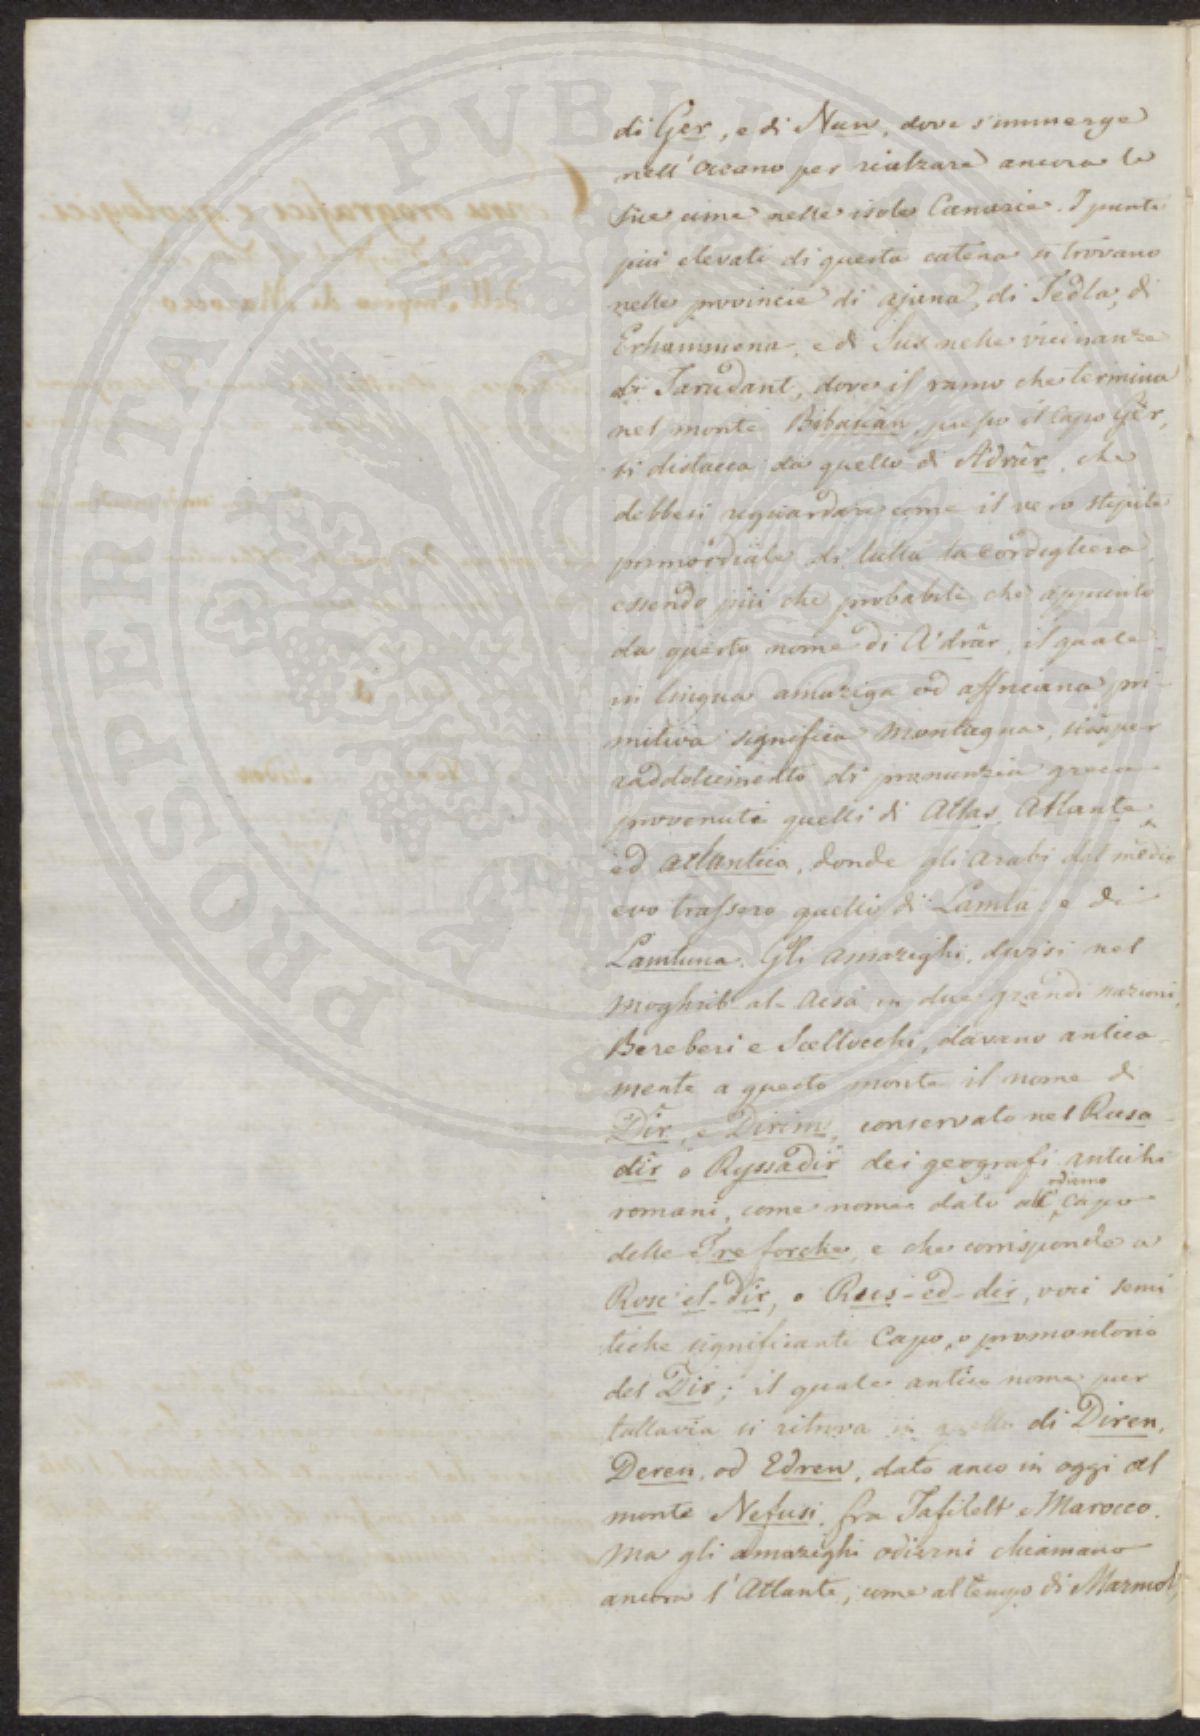 di Ger, e di Nun, dove s'immerge
nell'Oceano per rialzare ancora le
sue cime nelle isole Canarie. I punti
più elevati di questa catena si trovano
nelle provincie di ajana, di Tedla, di
Erhammena, e di Sus nelle vicinanze
di Tarudant, dove il ramo che termina
nel monte Bibauàn, presso il Capo Ger,
si distacca da quello di Adràr, che
debbesi riguardare come il vero stipite
primordiale di tutta la cordigliera,
essendo più che probabile che appunto
da questo nome di A'dràr, il quale
in lingua amaziga od affricana pri-
mitiva significa montagna, sian per
raddolcimento di pronunzia greca
provenuti quelli di Atlas, Atlante,
ed atlantico, donde gli arabi del medio
evo trassero quelli di Lamta e di
Lamtuna. Gli amazighi, divisi nel
Moghrib-al-Acsa in due grandi nazioni,
Bereberi e Scellocchi, davano antica-
mente a questo monte il nome di
Dir, e Dirim, conservato nel Rusa-
dir o Ryssadir dei geografi antichi
romani, come nome dato all' odierno capo
delle Tre forche, e che corrisponde a
Rusc' el-dir, o Rus-ed-dir, voci semi-
tiche significanti Capo, o promontorio
del Dir; il quale antico nome per
tuttavia si ritrova in quello di Diren,
Deren, od Edren, dato anco in oggi al
monte Nefusi, fra Tafilelt e Marocco.
Ma gli amazighi odierni chiamano
ancora l'Atlante, come al tempo di Marmol,
PROSPERITATI PVBLICAE